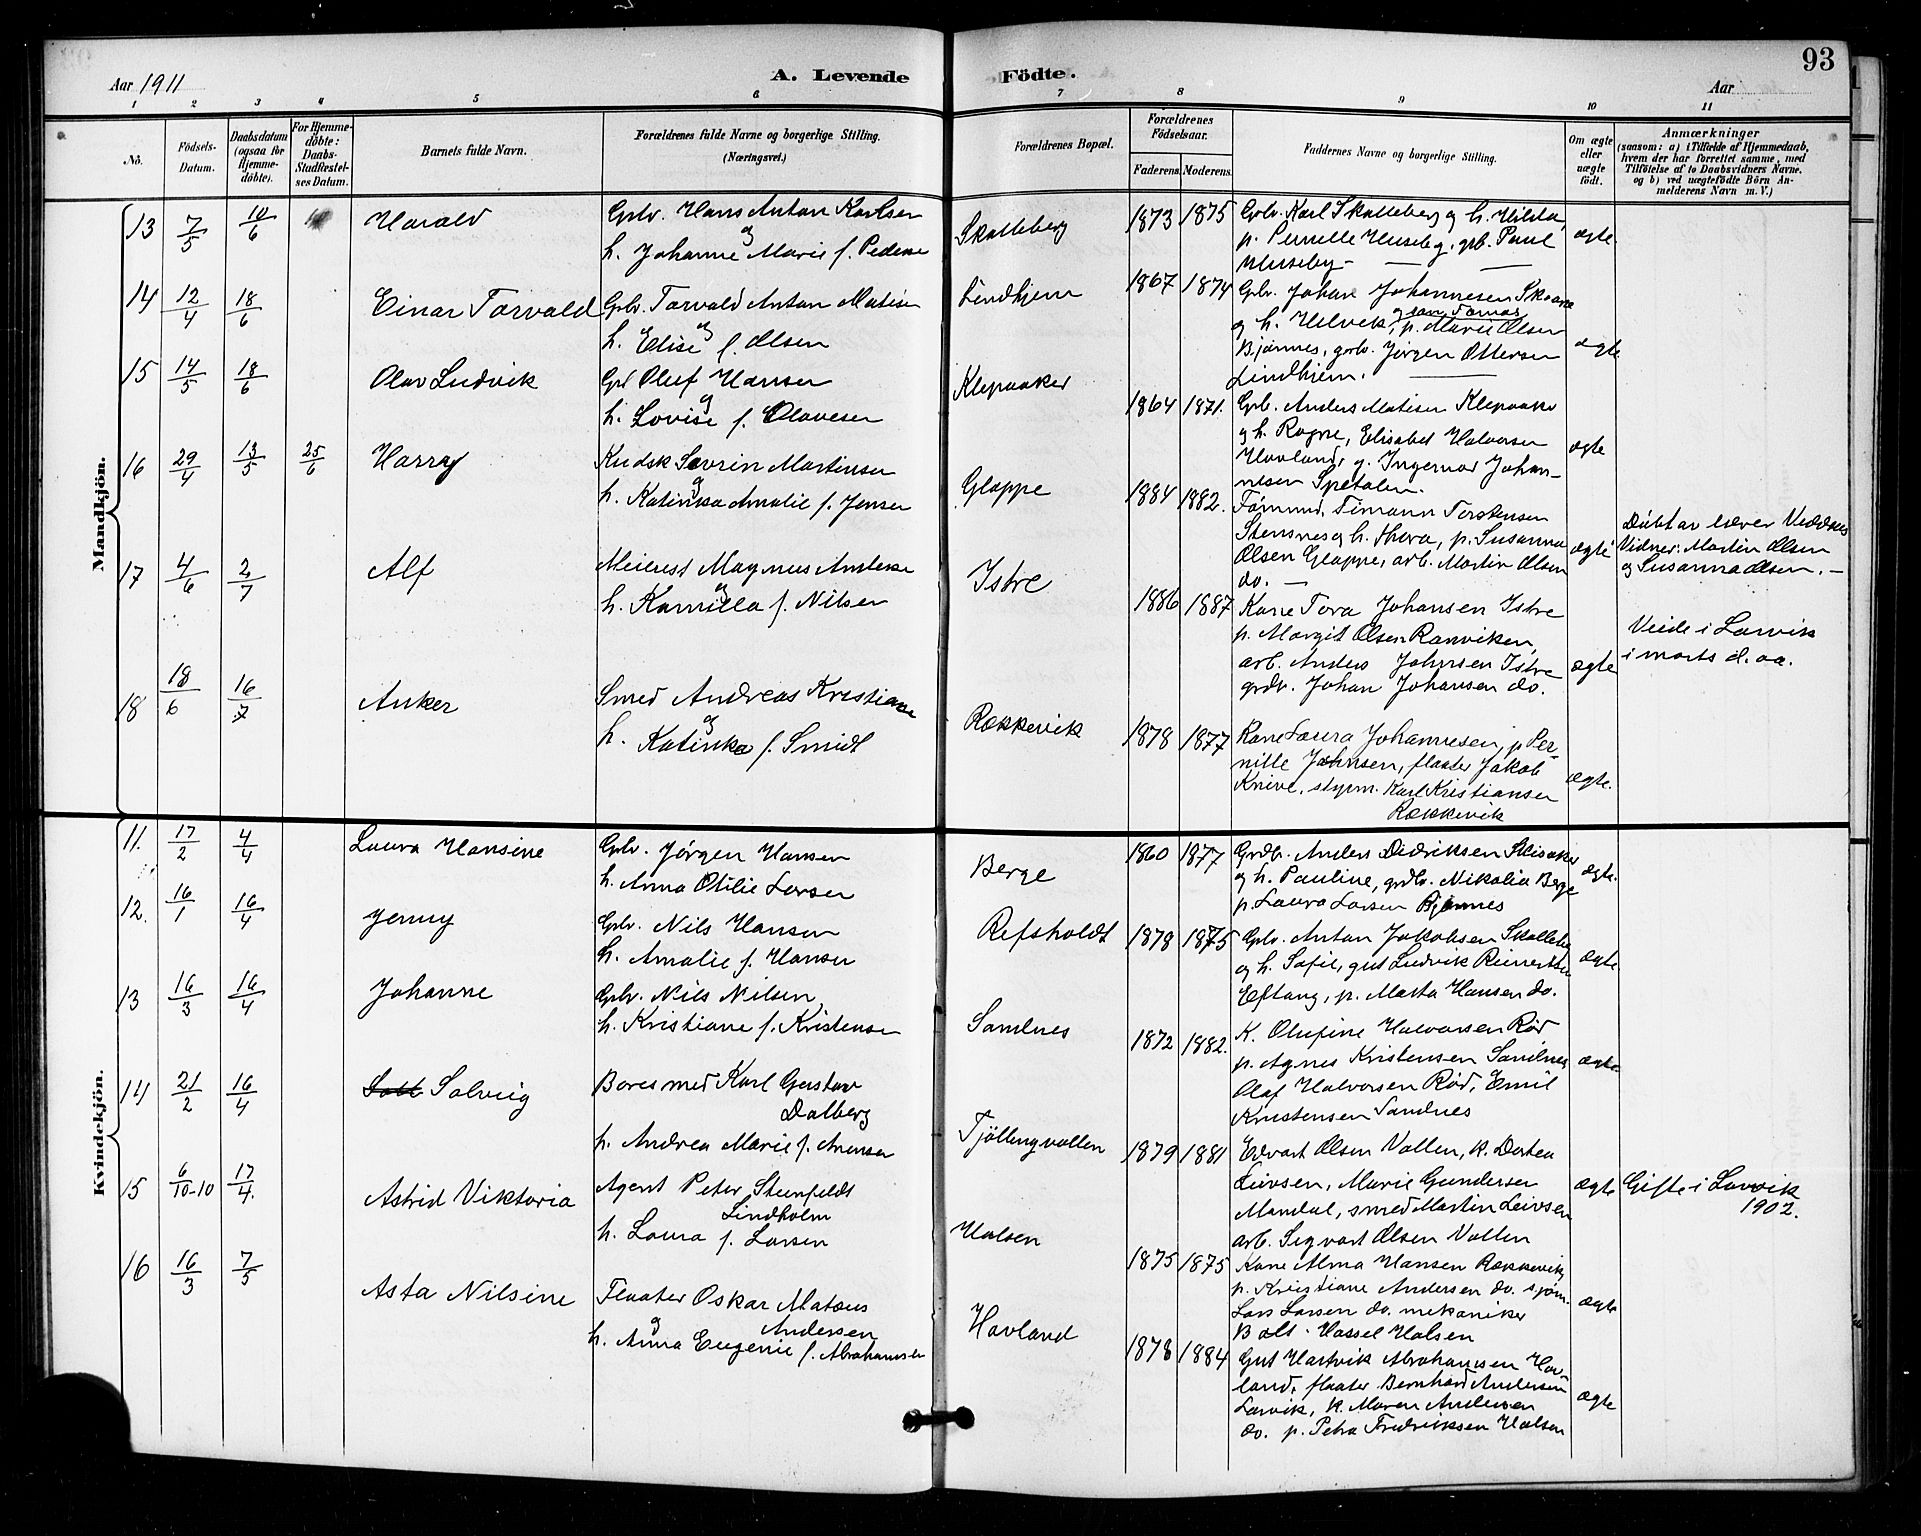 93
Aar 1911
A. Levende
Födte.
Aar
1 2 3 4 5 6 7 8 9 10 11
No.
Födsels-
Datum.
Daabsdatum
(ogsaa for
Hjemme-
döbte).
For Hjemme-
döbte:
Daabs-
Stadfæstel-
ses Datum.
Barnets fulde Navn.
Forældrenes fulde Navne og borgerlige Stilling.
(Næringsvei.)
Forældrenes Bopæl.
Forældrenes
Födselsaar.
Faderens.
Moderens.
Faddernes Navne og borgerlige Stilling.
Om ægte
eller
uægte
födt.
Anmærkninger
(saasom: a) i Tilfælde af Hjemmedaab,
hvem der har forrettet samme, med
Tilföielse af to Daabsvidners Navne.
og b) ved uægtefödte Börn An-
melderens Navn m. V.)
Mandkjön.
13 7/5 10/6 Harald
Gbr. Hans Anton Karlsen
og
h. Johanne Marie f. Pederse
Skalleberg 1873 1875
Gbr. Karl Skalleberg og h. Hilda,
p. Pernille Huseby, grb. Paul
Huseby —
ægte.
14 12/4 18/6 Einar Torvald
Gbr. Torvald Anton Matisen
og
h. Elise f. Olsen
Lindhjem 1867 1874
Gbr. Johan Johannesen Skaane
og h. Helvik, p. Marie Olsen
Bjønnes, gbr. Jørgen Ottersen
Lindhjem.
ægte
15 14/5 18/6 Olav Ludvik
Gbr Oluf Hansen
og
h. Lovise f. Olavesen
Klepaaker 1864 1871.
Gbr. Anders Matisen Klepaake
og h. Ragne, Elisabet Halvorsen
Hovland, g. Ingemar Johan-
nesen Spetalen.
ægte
16 29/4 13/5 25/6 Harry
Kudsk Søvrin Martinsen
og
h. Katinka Amalie f. Jensen
Gloppe 1884 1882.
Tømmd. Timann Torstensen
Stensnes og h. Thora, p. Susanna
Olsen Gloppe, arb. Martin Olsen
do. —
ægte
Døbt av lærer
Vidner: Martin Olsen
og Susanna Olsen. —
17 4/6 2/7 Alf
Meierist Magnus Anderse
og
h. Kamilla f. Nilsen
Istre 1886 1887
Kone Tora Johansen Istre
p. Margit Olsen Ranviken,
arb. Anders Johnsen Istre
grdbr. Johan Johansen do.
ægte
Viede i Larvik
i marts d. aa.
18 18/6 16/7 Anker
Smed Andreas Kristianse
og
h. Katinka f. Smidt
Rekkevik 1878 1877
Kone Laura Johannesen, p Per-
nille Johnsen, flaater Jakob
Knive, styrm. Karl Kristiansen
Rekkevik
ægte.
Kvindekjön.
11. 17/2 4/4 Laura Hansine
Gbr. Jørgen Hansen
h. Anna Otilie Larsen
Berge 1860 1877
Grdb. Anders Didriksen Skisaker
og h. Pauline, grdbr. Nikolia Berge
p. Laura Larsen Bjønnes
ægte.
12. 16/1 16/4 Jenny
Gbr. Nils Hansen
h. Amalie f. Hansen
Refsholdt 1878 1875
Gbr. Anton Jakobsen Skalleb
og h. Sofie, gut Ludvik Reinertsen
Eftang, p. Marta Hansen do.
ægte.
13 16/3 16/4 Johanne
Gbr. Nils Nilsen,
h. Kristiane f. Kristensen
Sandnes 1872 1882.
K. Olufine Halvorsen Rød
p. Agnes Kristensen Sandnes
Olaf Halvorsen Rød, Emil
Kristensen Sandnes
ægte
14 21/2 16/4 Solveig
Boresmed Karl Gustav
Dalberg
h. Andrea Marie f. Arensen
Tjøllingvollen 1879 1881
Edvart Olsen Vollen, k. Dortea
Leivsen, Marie Gundersen
Mandal, smed Martin Leivsen
arb. Sigvart Olsen Vollen
ægte
Gifte i Larvik
1902.
15 6/10-10 17/4. Astrid Viktoria
Agent Peter Steenfeldt
Lindholm
h. Laura f. Larsen
Halsen 1875 1875
Kone Alma Hansen Rekkevik,
p. Kristiane Andersen do. sjøm.
Lars Larsen do. mekaniker
Balt. Hassel Halsen
ægte
16 16/3 7/5 Asta Nilsine
Flaater Oskar Mateus
og Andersen
h. Anna Eugenie f. Abrahamsen
Hovland 1878 1884
Gut Hartvik Abrahamsen Hov-
land, flaater Bernhard Andersen
Larvik, k. Maren Andersen
do. p. Petra Fredriksen Halsen
ægte